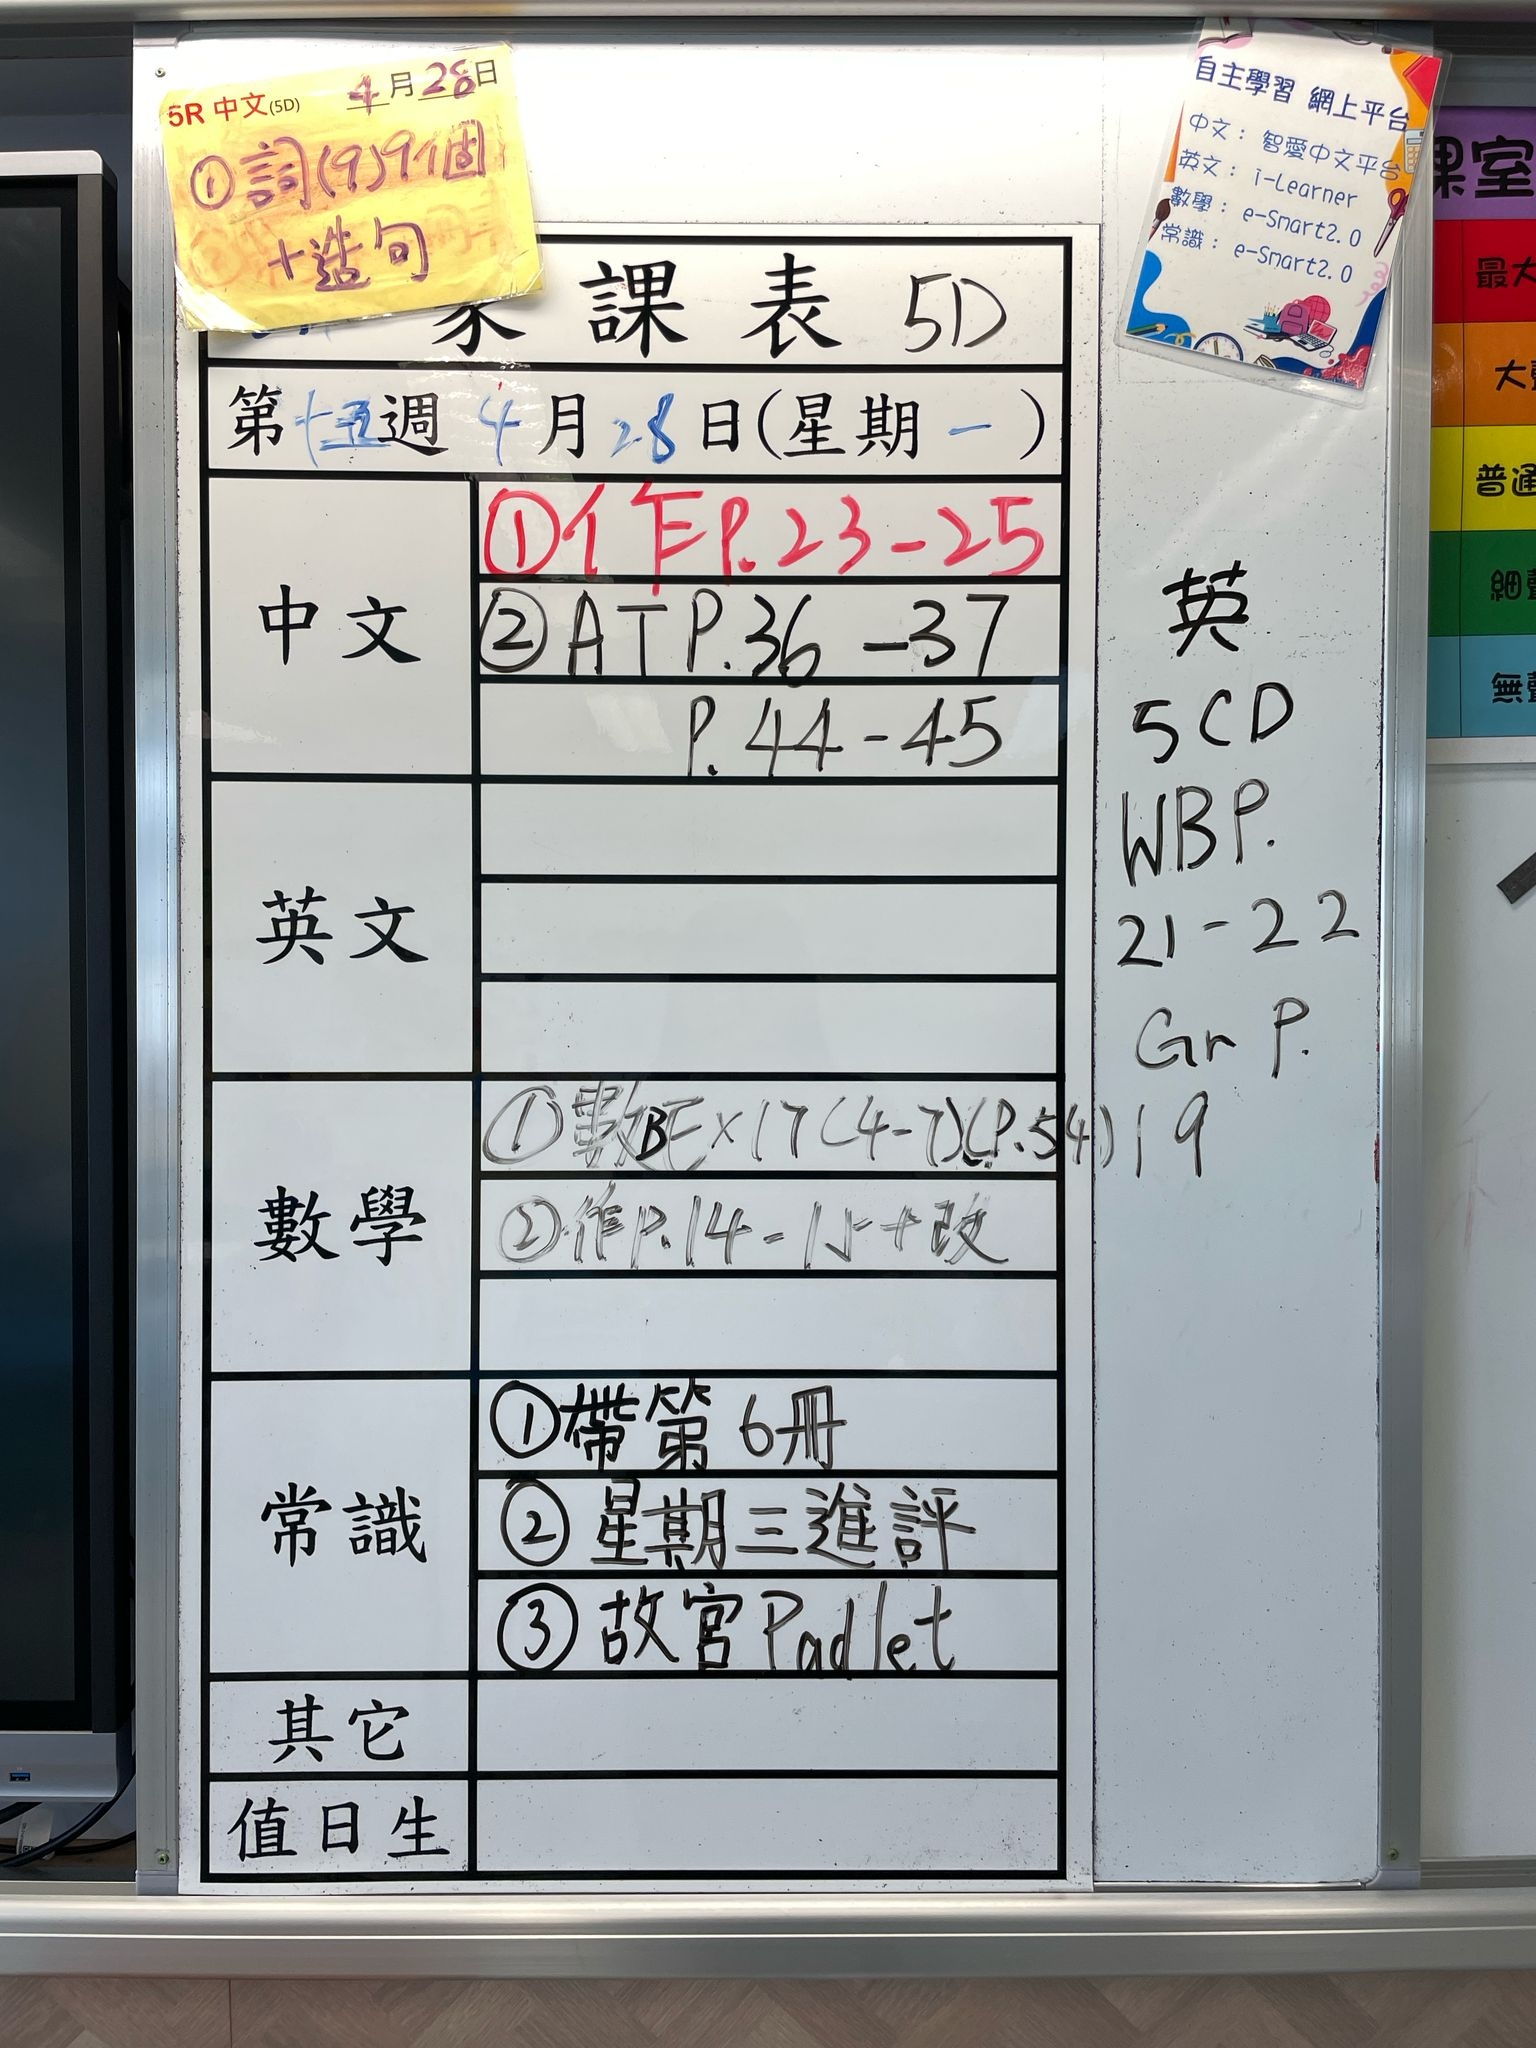 5R 中文(5D) 4月28日
①詞(9)9個
+造句
自主學習 網上平台
中文：智愛中文平台
英文：i-Learner
數學：e-Smart2.0
常識：e-Smart2.0
課室
最大
大
普通
細
無
家課表 5D
第十五週 4月28日(星期一)
中文
①作P.23-25
②ATP.36-37
P.44-45
英文
英
5CD
WBP.
21-22
Gr P.
19
數學
①數BEx17(4-7)(P.54)
②作P.14-15+改
常識
①帶第6冊
②星期三進評
③故宮Padlet
其它
值日生